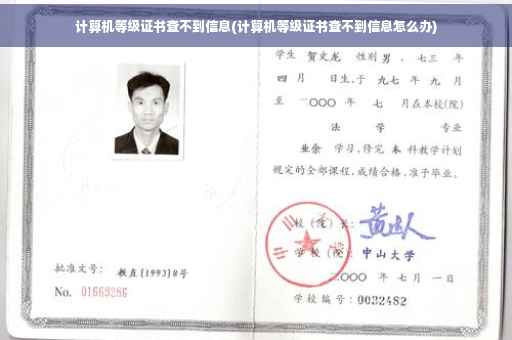 计算机等级证书查不到信息(计算机等级证书查不到信息怎么办)
学生 贺文龙 性别男，七三 年
四月 日生，于九七年 九 月
至 二〇〇〇 年 七 月在本校(院)
法 学 专业
业余 学习，修完 本 科教学计划
规定的全部课程，成绩合格，准予毕业。
校（院）长：
学校（院）：中山大学
二〇〇〇 年 七 月 一 日
批准文号： 教直[1993]8号
No. 01669286
学校编号：0032482